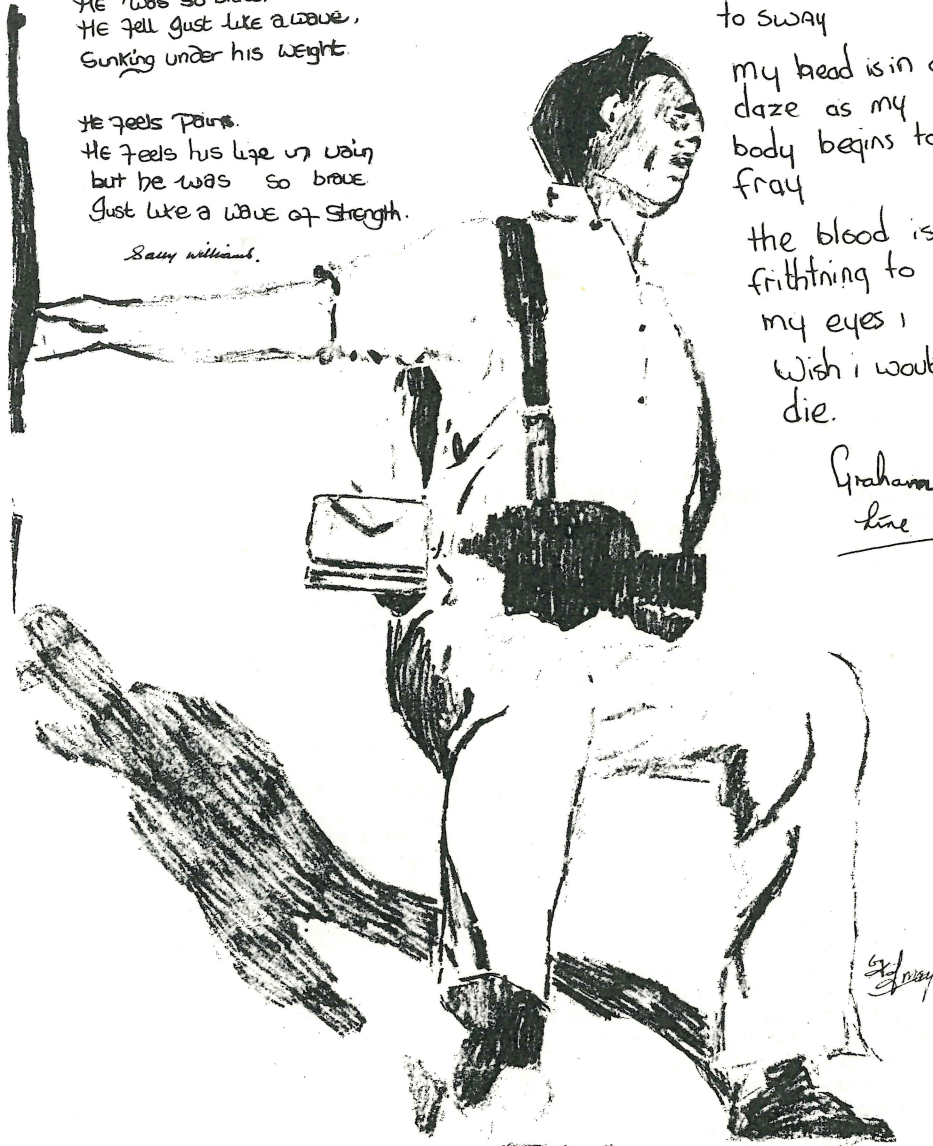 He was so brave.
He fell just like a wave,
Sunking under his weight.
He feels pains.
He feels his life in vain
but he was so brave
Just like a wave of Strength.
Sally Williams.
to sway
my head is in a
daze as my
body begins to
fray
the blood is
frithtning to
my eyes i
wish i would
die.
Graham
Line
by